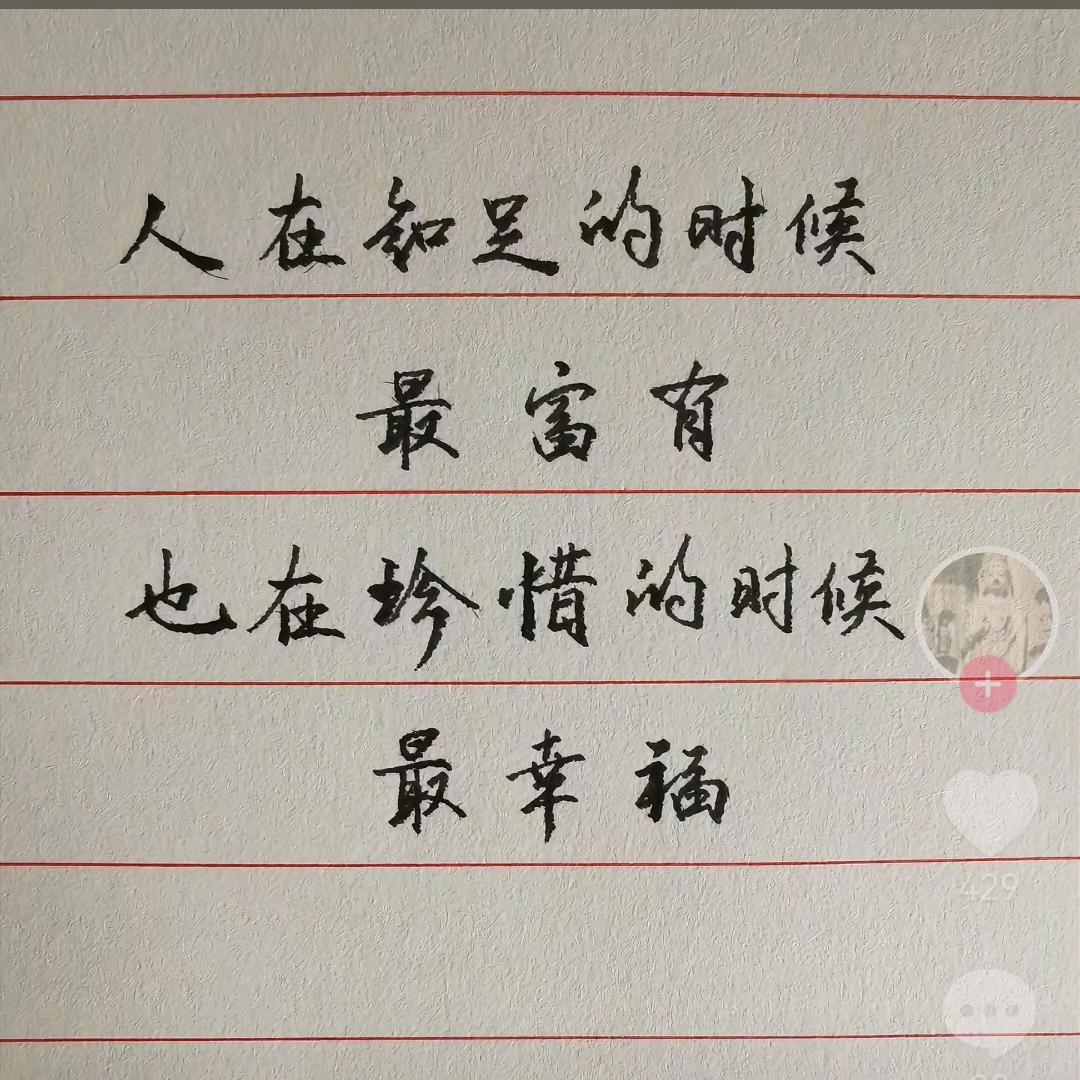 人在知足的时候
最富有
也在珍惜的时候
最幸福
429